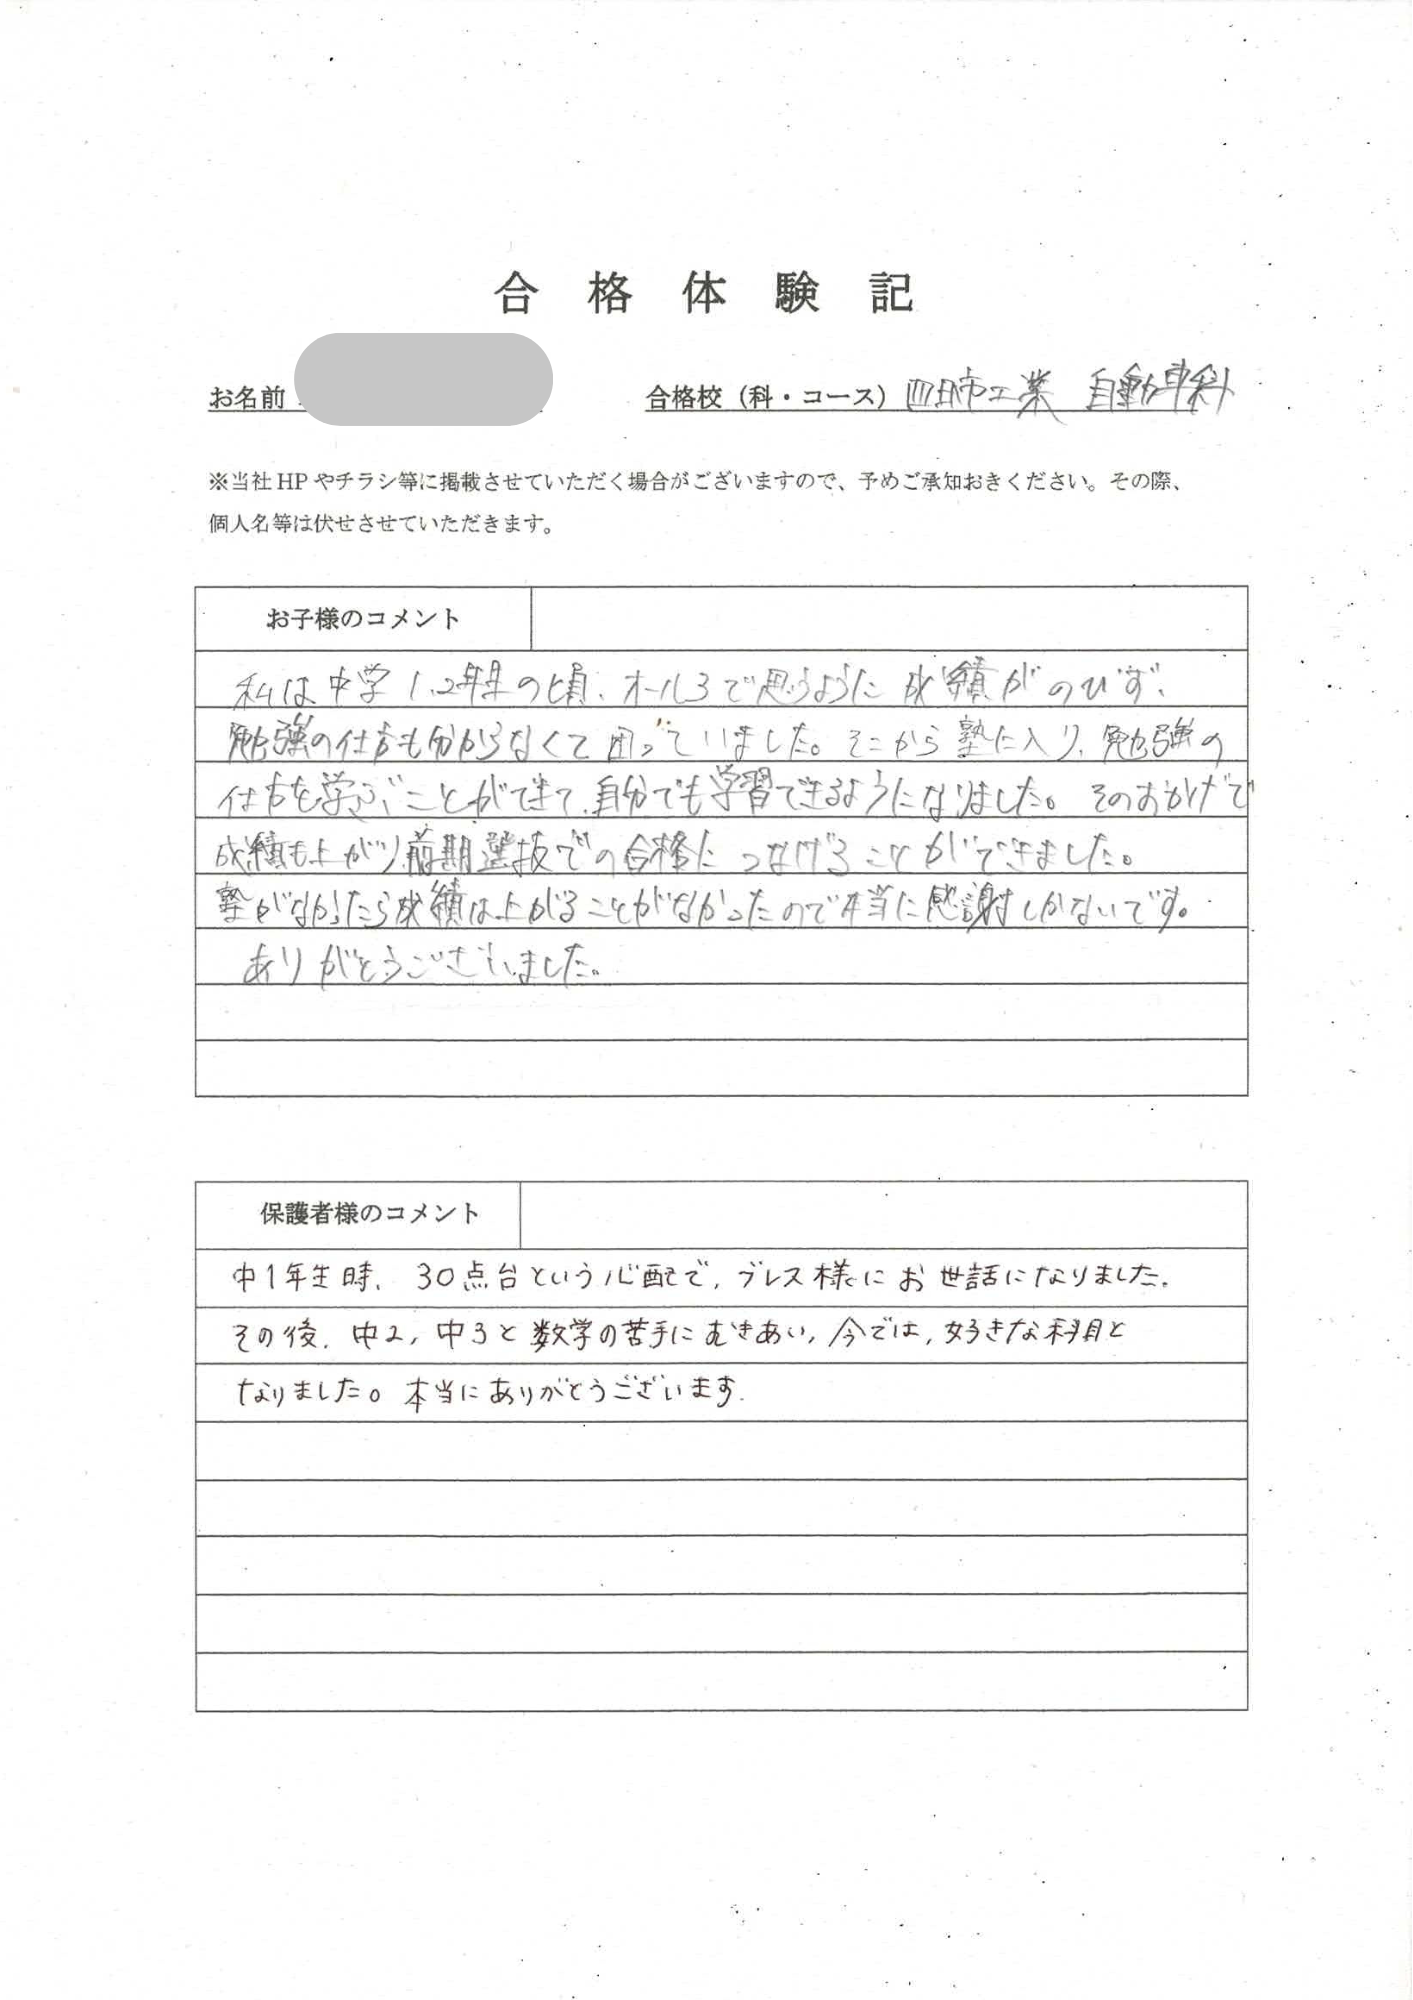 合格体験記
お名前
合格校（科・コース）四日市工業 自動車科
※当社HPやチラシ等に掲載させていただく場合がございますので、予めご承知おきください。その際、
個人名等は伏せさせていただきます。
お子様のコメント
私は中学1.2年生の頃、オール3で思うように成績がのびず、
勉強の仕方も分からなくて困っていました。そこから塾に入り、勉強の
仕方を学ぶことができて、自分でも学習できるようになりました。そのおかげで
成績も上がり、前期選抜での合格につなげることができました。
塾がなかったら成績は上がることがなかったので本当に感謝しかないです。
ありがとうございました。
保護者様のコメント
中1年生時、30点台という心配で、ブレス様にお世話になりました。
その後、中2、中3と数学の苦手にむきあい、今では、好きな科目と
なりました。本当にありがとうございます。